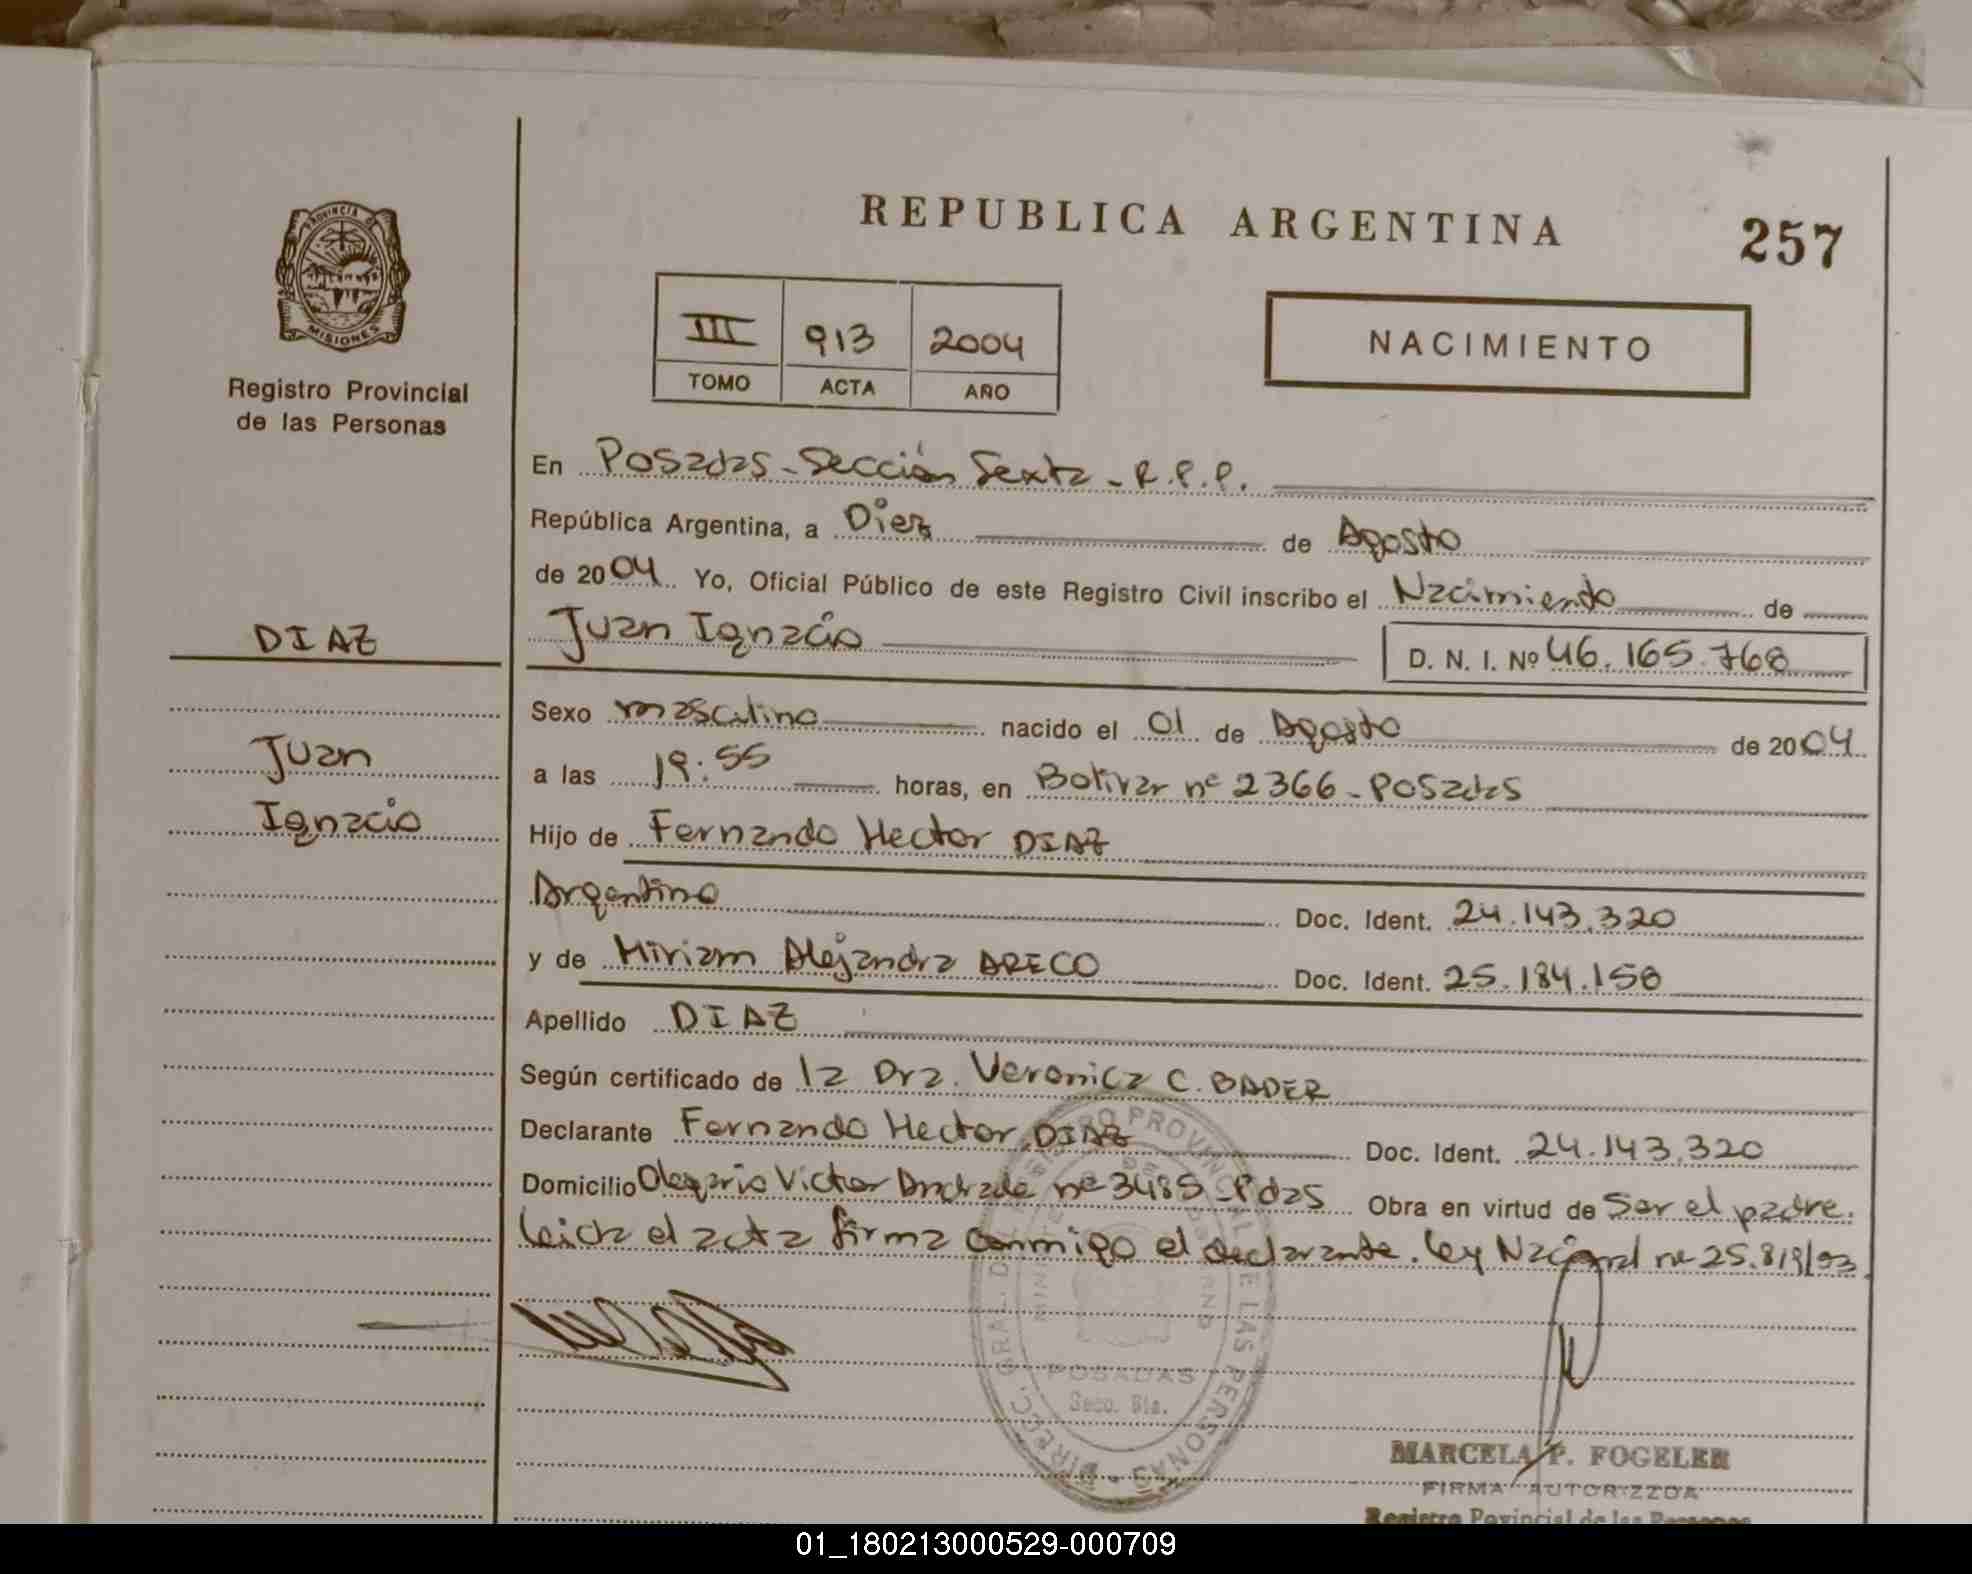 REPUBLICA ARGENTINA
257
PROVINCIA DE
MISIONES
Registro Provincial
de las Personas
III 913 2004
TOMO ACTA AÑO
NACIMIENTO
En Posadas - Sección Sexta - R.P.P.
República Argentina, a Diez de Agosto
de 2004 Yo, Oficial Público de este Registro Civil inscribo el Nacimiento de
DIAZ
Juan Ignacio D. N. I. Nº 46.165.768
Sexo masculino nacido el 01 de Agosto de 2004
Juan
Ignacio
a las 19:55 horas, en Bolivar nº 2366 - Posadas
Hijo de Fernando Hector DIAZ
Argentino Doc. Ident. 24.143.320
y de Miriam Alejandra ARECO Doc. Ident. 25.184.158
Apellido DIAZ
Según certificado de la Dra. Veronica C. BADER
Declarante Fernando Hector DIAZ Doc. Ident. 24.143.320
Domicilio Olegario Victor Andrade nº 3485 - Pdas Obra en virtud de Ser el padre.
Leida el acta firma conmigo el declarante. Ley Nacional nº 25.819/03.
DIRECC. GRAL. DEL REGISTRO PROVINCIAL DE LAS PERSONAS
POSADAS
Secc. 6ta.
MARCELA P. FOGELER
FIRMA AUTORIZZDA
Registro Povincial de las Personas
01_180213000529-000709